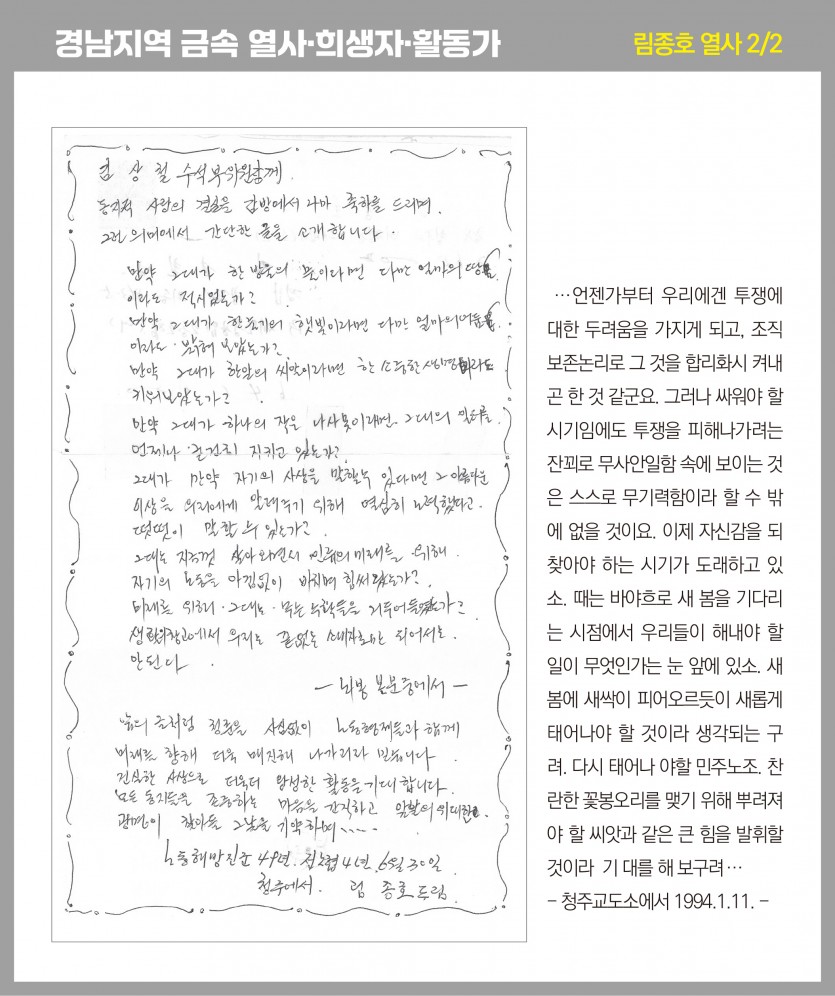 경남지역 금속 열사·희생자·활동가
림종호 열사 2/2
림 상 철 수석부위원장께
동지적 사랑의 결실을 감방에서 나마 축하를 드리며,
그런 의미에서 간단한 을 소개합니다..
만약 그대가 한 방울의 물이라면 다만 얼마의 땅을
이라도 적시었는가?
만약 그대가 한줄기의 햇빛이라면 다만 얼마의 어둠을
이라도 밝혀 보았는가?
만약 그대가 한알의 씨앗이라면 한 소중한 생명이라도
키워 보았는가?
만약 그대가 하나의 작은 나사못이라면 그대의 일터를
언제나 굳건히 지키고 있는가?
그대가 만약 자기의 사상을 말할수 있다면 그 아름다운
이상을 우리에게 알려주기 위해 열심히 노력했다고
떳떳이 말할 수 있는가?
그대는 지금껏 살아 오면서 인류의 미래를 위해
자기의 모든을 아낌없이 바치며 힘써왔는가?
미래를 위해 그대는 무슨 수확들을 거두어들였는가?
생활의 창고에서 우리는 끝없는 소비자로만 되어서는
안된다.
— 뇌봉 본문중에서 —
청춘을 사심없이 노동형제들과 함께
미래를 향해 더욱 매진해 나가리라 믿습니다.
진실한 사상으로 더욱더 왕성한 활동을 기대합니다.
모든 동지들을 존중하는 마음을 간직하고 앞날의 위대한
광명이 찾아올 그날을 기약하며....
노동해방진군 49년. 전노협 4년. 6월 30일.
청주에서. 림 종호 드림.
…언젠가부터 우리에겐 투쟁에
대한 두려움을 가지게 되고, 조직
보존논리로 그 것을 합리화시 켜내
곤 한 것 같군요. 그러나 싸워야 할
시기임에도 투쟁을 피해나가려는
잔꾀로 무사안일함 속에 보이는 것
은 스스로 무기력함이라 할 수 밖
에 없을 것이요. 이제 자신감을 되
찾아야 하는 시기가 도래하고 있
소. 때는 바야흐로 새 봄을 기다리
는 시점에서 우리들이 해내야 할
일이 무엇인가는 눈 앞에 있소. 새
봄에 새싹이 피어오르듯이 새롭게
태어나야 할 것이라 생각되는 구
려. 다시 태어나 야할 민주노조. 찬
란한 꽃봉오리를 맺기 위해 뿌려져
야 할 씨앗과 같은 큰 힘을 발휘할
것이라 기 대를 해 보구려…
- 청주교도소에서 1994.1.11. -